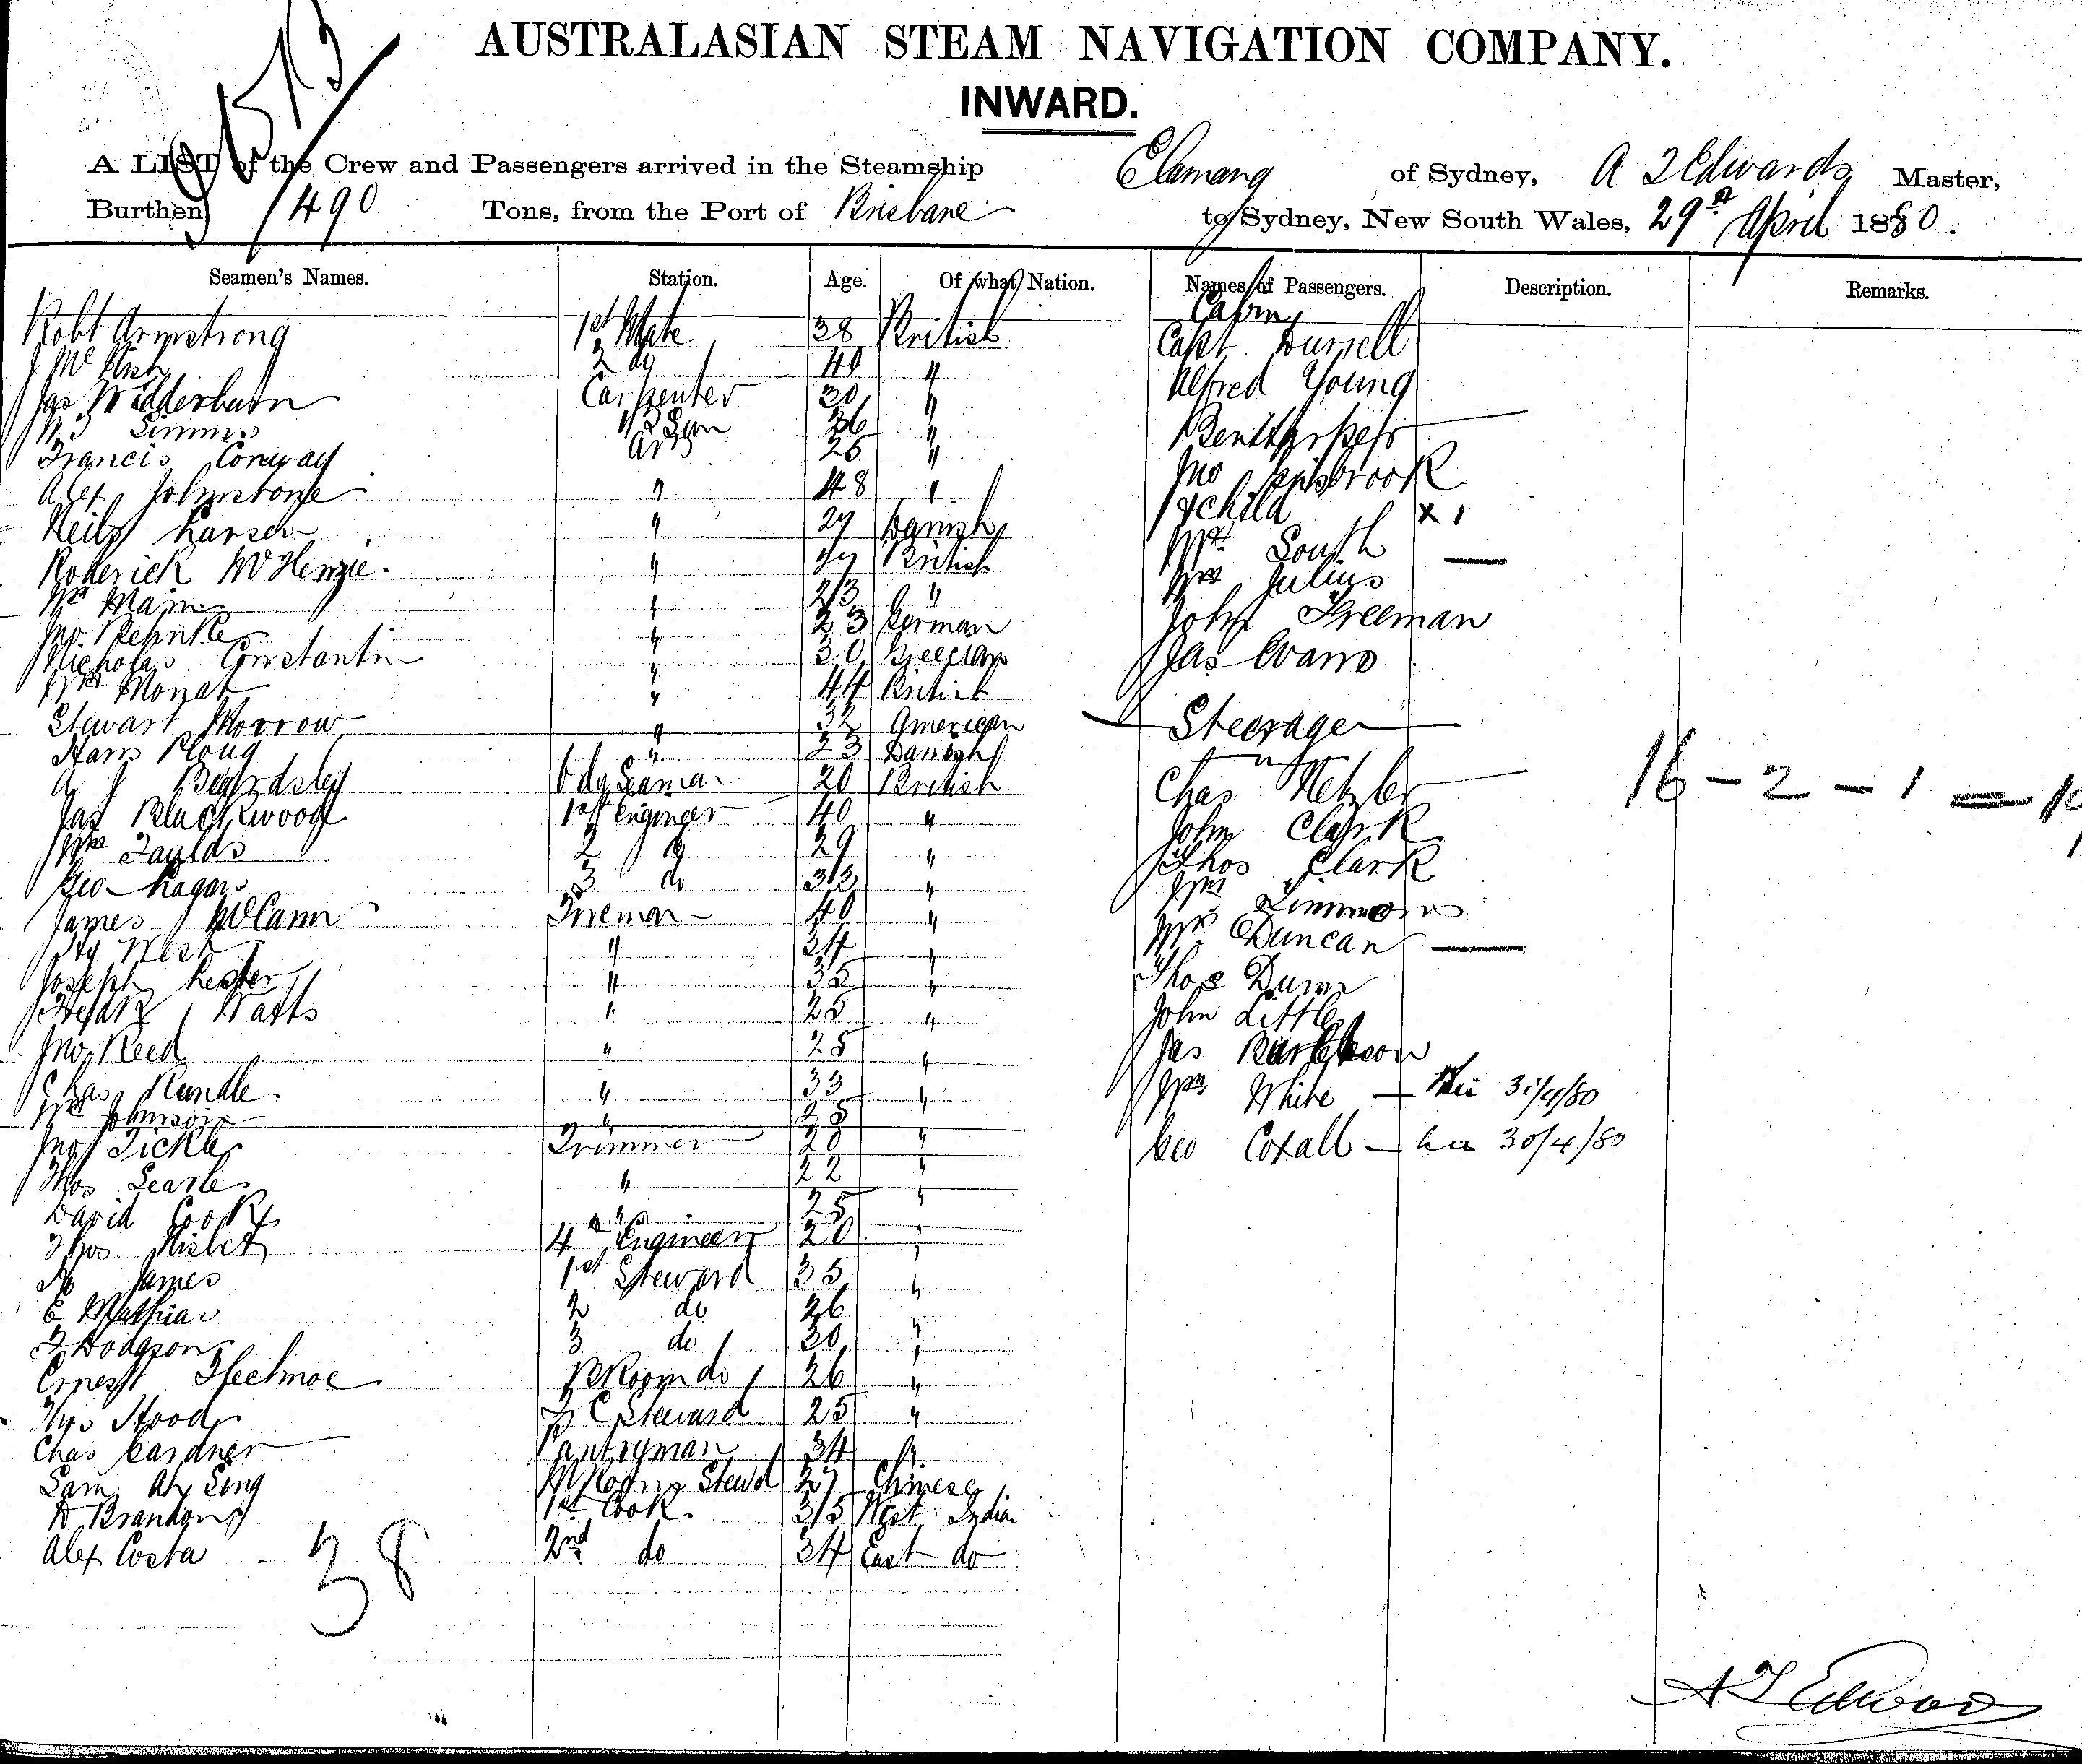 AUSTRALASIAN STEAM NAVIGATION COMPANY.
INWARD.
A LIST of the Crew and Passengers arrived in the Steamship Elamang of Sydney, A T Edwards Master,
Burthen 490 Tons, from the Port of Brisbane to Sydney, New South Wales, 29th April 1880.
Seamen's Names. Station. Age. Of what Nation. Names of Passengers. Description. Remarks.
Cabin
Robt Armstrong 1st Mate 38 British Capt Burrell
2 do 40 " Alfred Young
Jas Wedderburn Carpenter 30 "
Simmes 36 "
Francis Conway AB 25 "
Alex Johnstone " 48 " Jno
Neils Larsen " 27 Danish & child x 1
Roderick McKenzie " British Mrs South —
Wm Main " 23 " Mrs Julius
Jno Behnke " 23 German John Freeman
Nicholas Constantin " 30 Grecian Jas Evans
Wm Monat " 44 British
Stewart Morrow " 32 American Steerage
Hans Ploug " 23 Danish
A J Beardsley Ody Seaman 20 British Chas Metzler 16 - 2 - 1 =
Jas Blackwood 1st Engineer 40 " John Clark
Wm Faulds 2 do 29 " Thos Clark
Geo Ragan 3 do 33 " Wm Simmons
James McCann Fireman 40 " Mrs Duncan —
Hy West " 34 "
Joseph Lester " 35 " Thos Dunn
Watts " 25 " John Little
Jno Reed " 28 " Jas
Chas Rundle " 33 " Wm White —
Wm Johnson " 28 "
Jno Tickle Trimmer 20 " Geo Coxall — 30/4/80
Thos Searle " 22 "
David Cook " 25 "
Thos Nisbet 4th Engineer 20 "
James 1st Steward 35 "
E Mathias 2 do 26 "
F Hodgson 3 do 30 "
Ernest Fleetmoe Room do 26 "
Thos Hood F C Steward 25 "
Chas Gardner Pantryman 34 "
Sam Ah Song Stewd Chinese
Brandon 1st Cook 35 West India
Alex Costa 2nd do 34 East do
38
A T Edwards